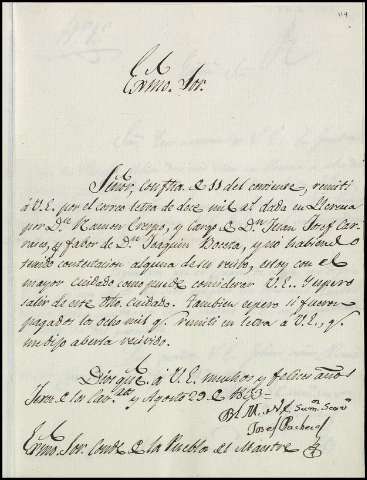 114
Exmo. Sor.
Señor, con fha. de 11 del corriente, remití
á V.E. por el correo letra de doce mil rl. dada en Llerena
por Dn. Ramon Crespo, y cargo de Dn. Juan Josef Car-
rasco, y fabor de Dn. Joaquin Dorca, y no habiendo
tenido contestacion alguna de su recibo, estoy con el
mayor cuidado como puede considerar V.E. y espero
salir de este cuidado. tambien espero si fueron
pagados los ocho mil q. remití en letra á V.E., q.
me dijo aberla recivido.
Dios gue. á V.E. muchos y felices años
Jerez de los Cavros. y Agosto 29 de 1803=
B.L.M. de V.E. su
Josef Pacheco
Exmo. Sor. Conde de la Puebla del Maestre